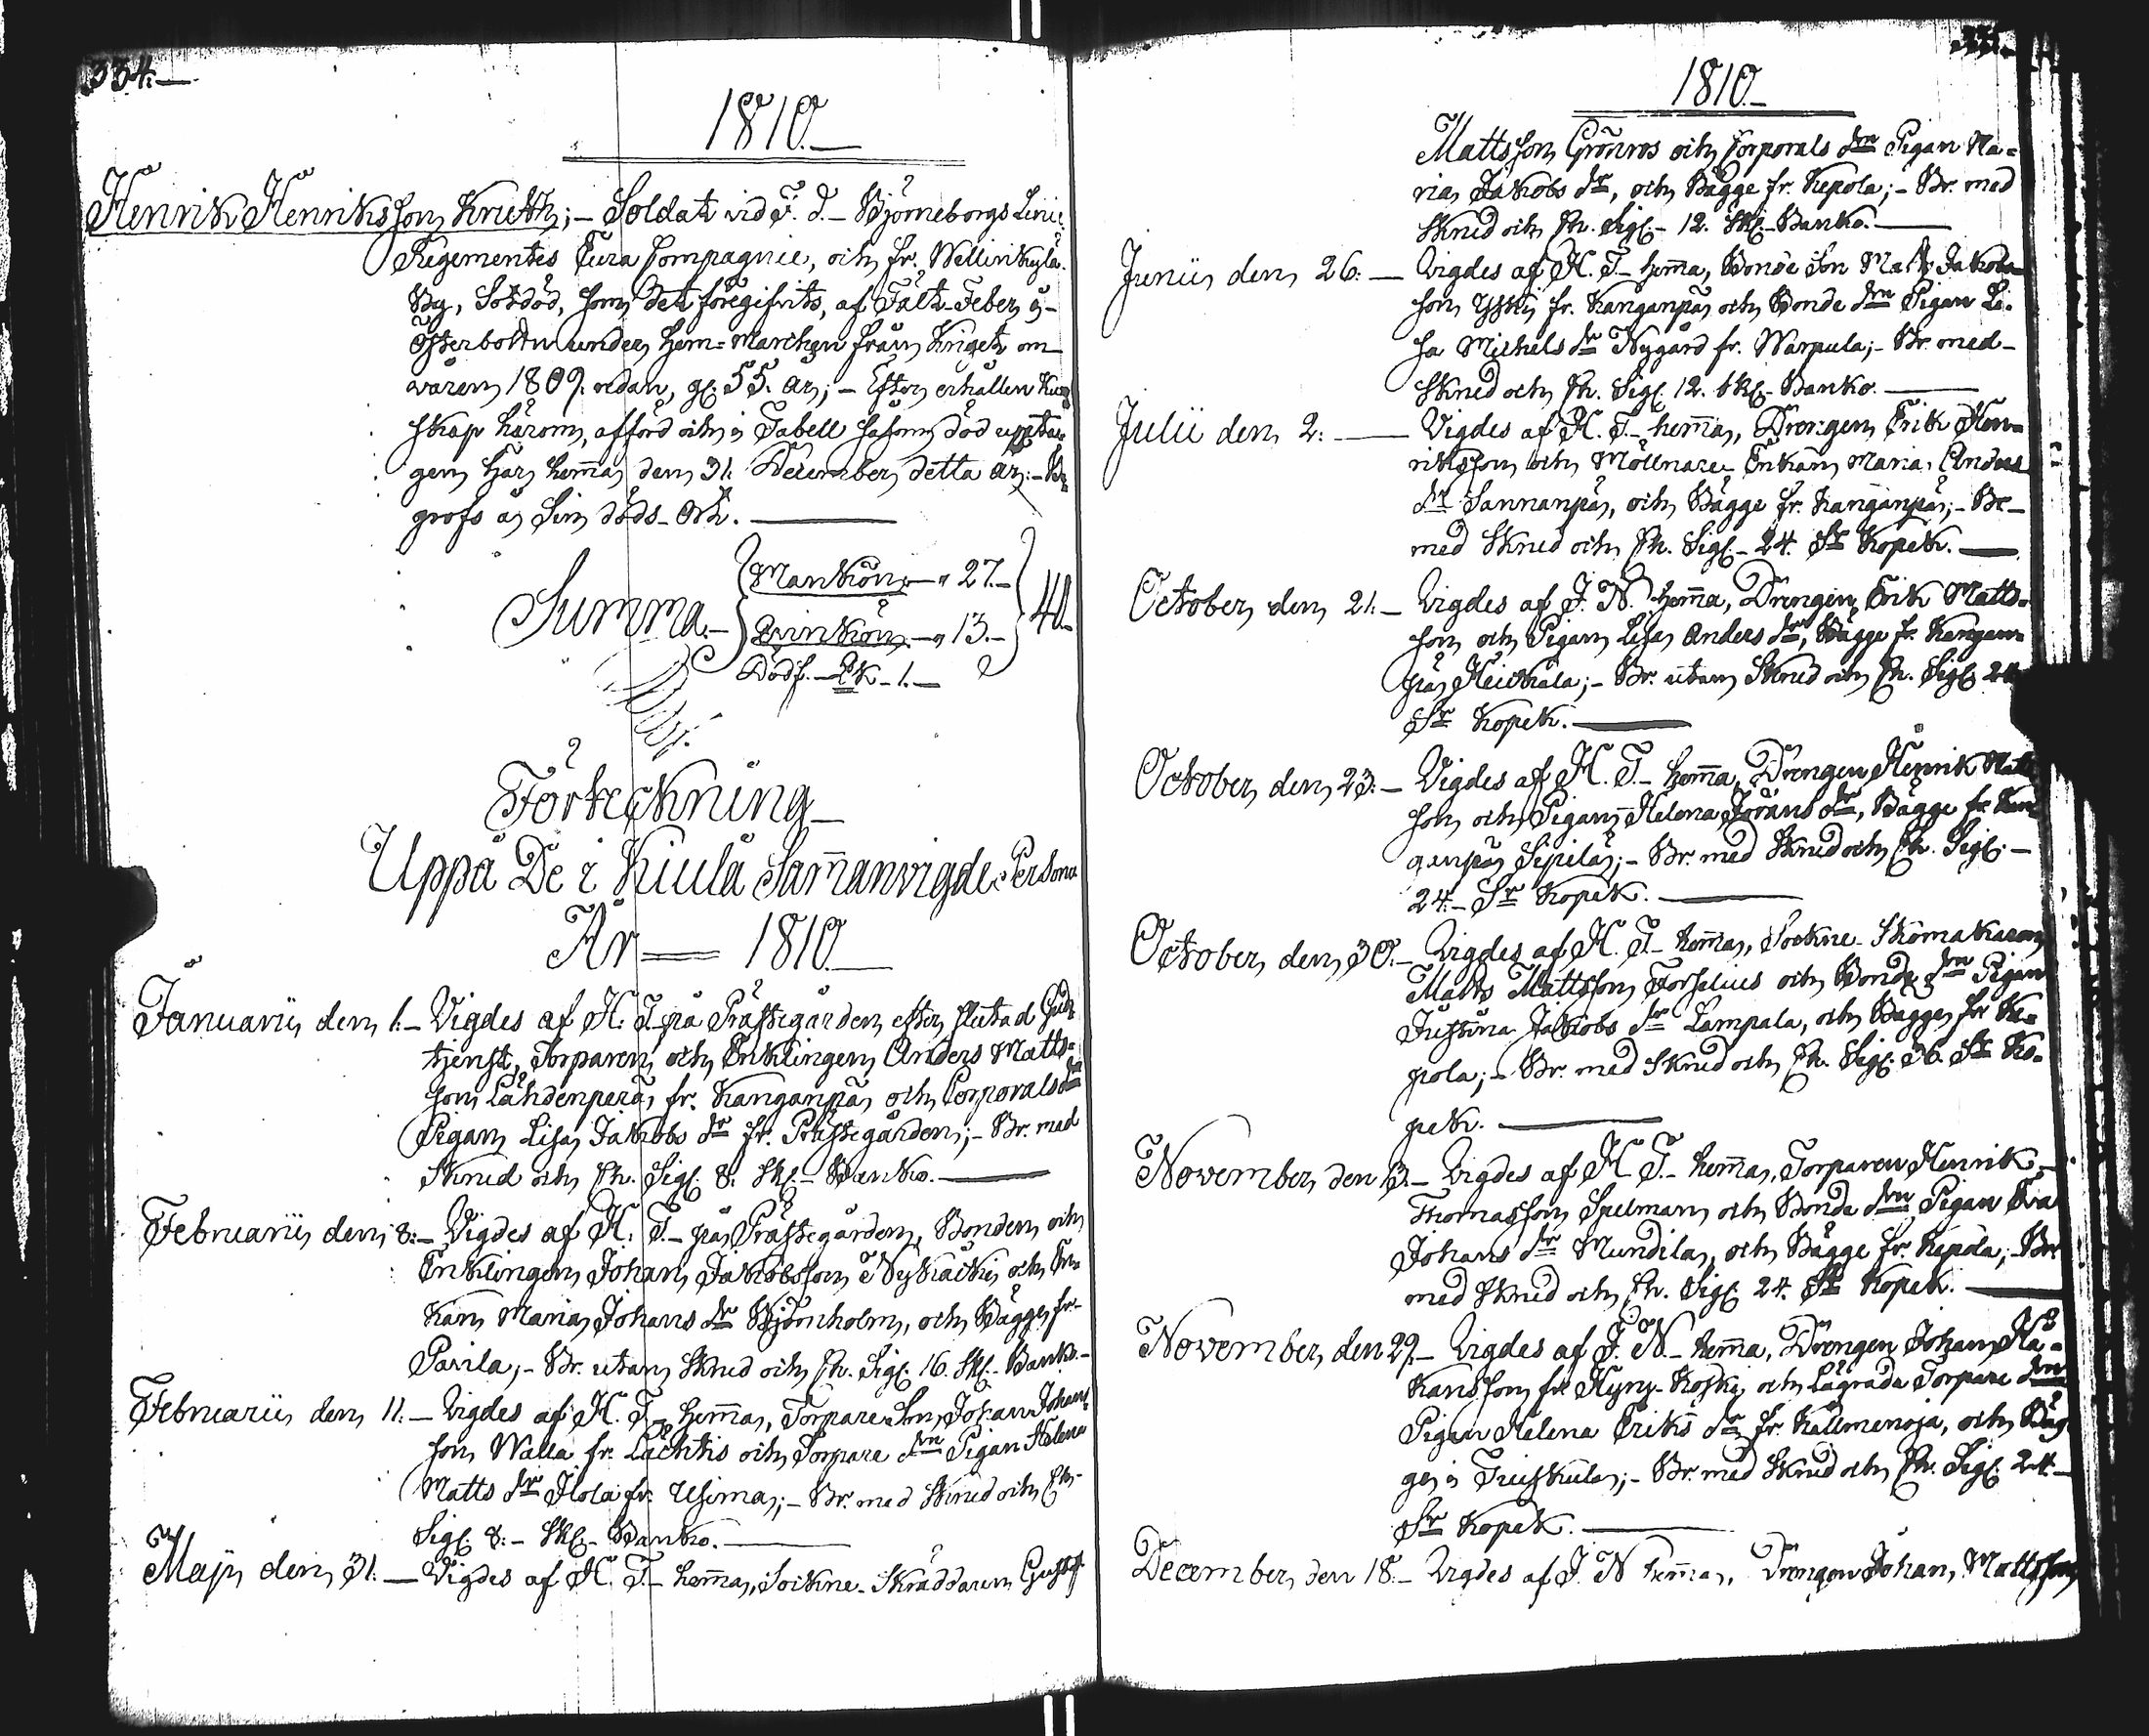 334.
1810.
Henrik Henriksson Knekt; Soldat vid F. d. Björneborgs Linie
Regementes Eura Compagnie, och fr. Wellinkylä
By, Sotdöd, som det föregifvits, af Fält-Feber i
Österbotten under hem-marchen från Kriget om
våren 1809. redan, gl. 55. år; Efter erhållen kun
skap härom, afförd och i Tabell såsom död uppta-
gen här hemma den 31. December detta år; Be
grofs å sin döds-Ort.
Summa. Mankön 27. 40
Qvinkön 13.
Dödf. Qk. 1.
Förteckning
Uppå De i Kiula Sammanvigde Persone
År 1810
Januarii den 1. Vigdes af H. T. på Prästegården efter slutad Guds
tjenst, Torparen och Enklingen Anders Matts-
son Lähdenperä, fr. Kanganpää och Corporals dr
Pigan Lisa Jakobs dr fr. Prästegården; Br. med
Skrud och Ch. Sigl. 8. Sk. Banko.
Februarii den 8. Vigdes af H. T. på Prästegården, Bonden och
Enklingen Johan Jakobsson Nykäcki och En-
kan Maria Johans dr Björnholm, och Bägge fr.
Pavila; Br. utan Skrud och Ch. Sigl. 16. Sk. Banko.
Februarii den 11. Vigdes af H. T. hemma, Torpare Son Johan Johans
son Walla fr. Lächtis och Torpare drn Pigan Helena
Matts dr Ilola fr. Usima; Br. med Skrud och Ch.
Sigl. 8. Sk. Banko.
Maji den 31. Vigdes af H. T. hemma, Sockne-Skräddaren Gustaf
1810.
Mattsson Grönros och Corporals drn Pigan Ma-
ria Jakobs dr, och Bägge fr. Kepola; Br. med
Skrud och Ch. Sigl. 12. Sk. Banko.
Junii den 26. Vigdes af H. T. hemma, Bonde Son Matts Jakobs
son Yssti fr. Kanganpää och Bonde drn Pigan Li-
sa Michels dr Nygård fr. Warpula; Br. med
Skrud och Ch. Sigl. 12. Sk. Banko.
Julii den 2. Vigdes af H. T. hemma, Drengen Erik Hen-
riksson och Möllnare Enkan Maria Anders
dr Sannanpää, och Bägge fr. Kanganpää; Br.
med Skrud och Ch. Sigl. 24. Sr Kopek.
October den 21. Vigdes af J. N. hemma, Drengen Erik Matts-
son och Pigan Lisa Anders dr, Bägge fr. Kangan-
pää Heickilä; Br. utan Skrud och Ch. Sigl. 24
Sr Kopek.
October den 23. Vigdes af H. T. hemma, Drengen Henrik Matts
son och Pigan Helena Jörans dr, Bägge fr. Kan-
ganpää Sipilä; Br. med Skrud och Ch. Sigl.
24. Sr Kopek.
October den 30. Vigdes af H. T. hemma, Sockne-Skomakaren
Matts Mattsson Forselius och Bonde drn Pigan
Justina Jakobs dr Lampala, och Bägge fr. Ke-
pola; Br. med Skrud och Ch. Sigl. 36. Sr Ko-
pek.
November den 13. Vigdes af H. T. hemma, Torparen Henrik
Thomasson Spelman och Bonde drn Pigan Eva
Johans dr Mundila, och Bägge fr. Kepola; Br.
med Skrud och Ch. Sigl. 24. Sr Kopek.
November den 29. Vigdes af J. N. hemma, Drengen Johan Hå-
kansson fr. Kyny-Koski och Lagrada Torpare drn
Pigan Helena Eriks dr fr. Kallmenoja, och Bäg
ge i Frijskula; Br. med Skrud och Ch. Sigl. 24.
Sr Kopek.
December den 18. Vigdes af J. N. hemma, Drengen Johan Mattsson